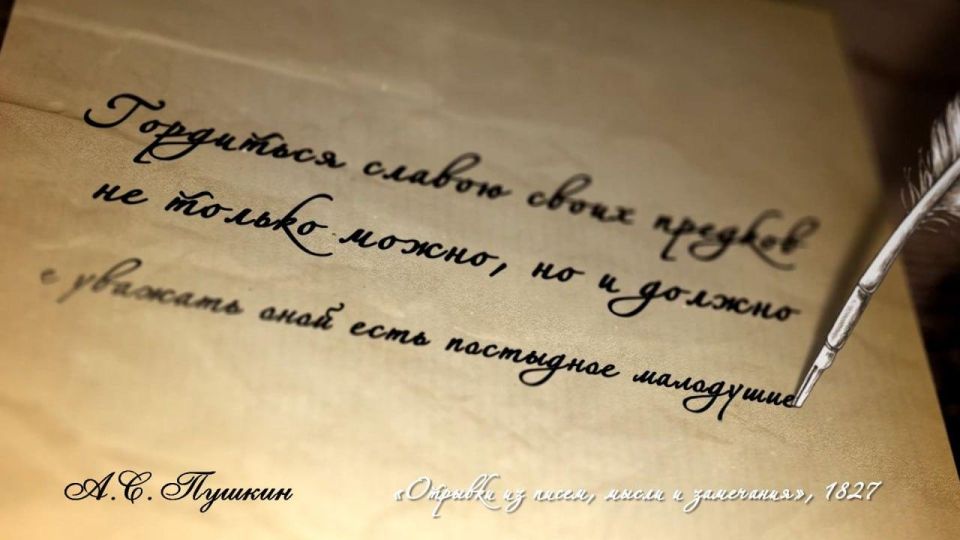 Гордиться славою своих предков
не только можно, но и должно
е уважать оной есть постыдное малодушие
А.С. Пушкин
«Отрывки из писем, мысли и замечания», 1827